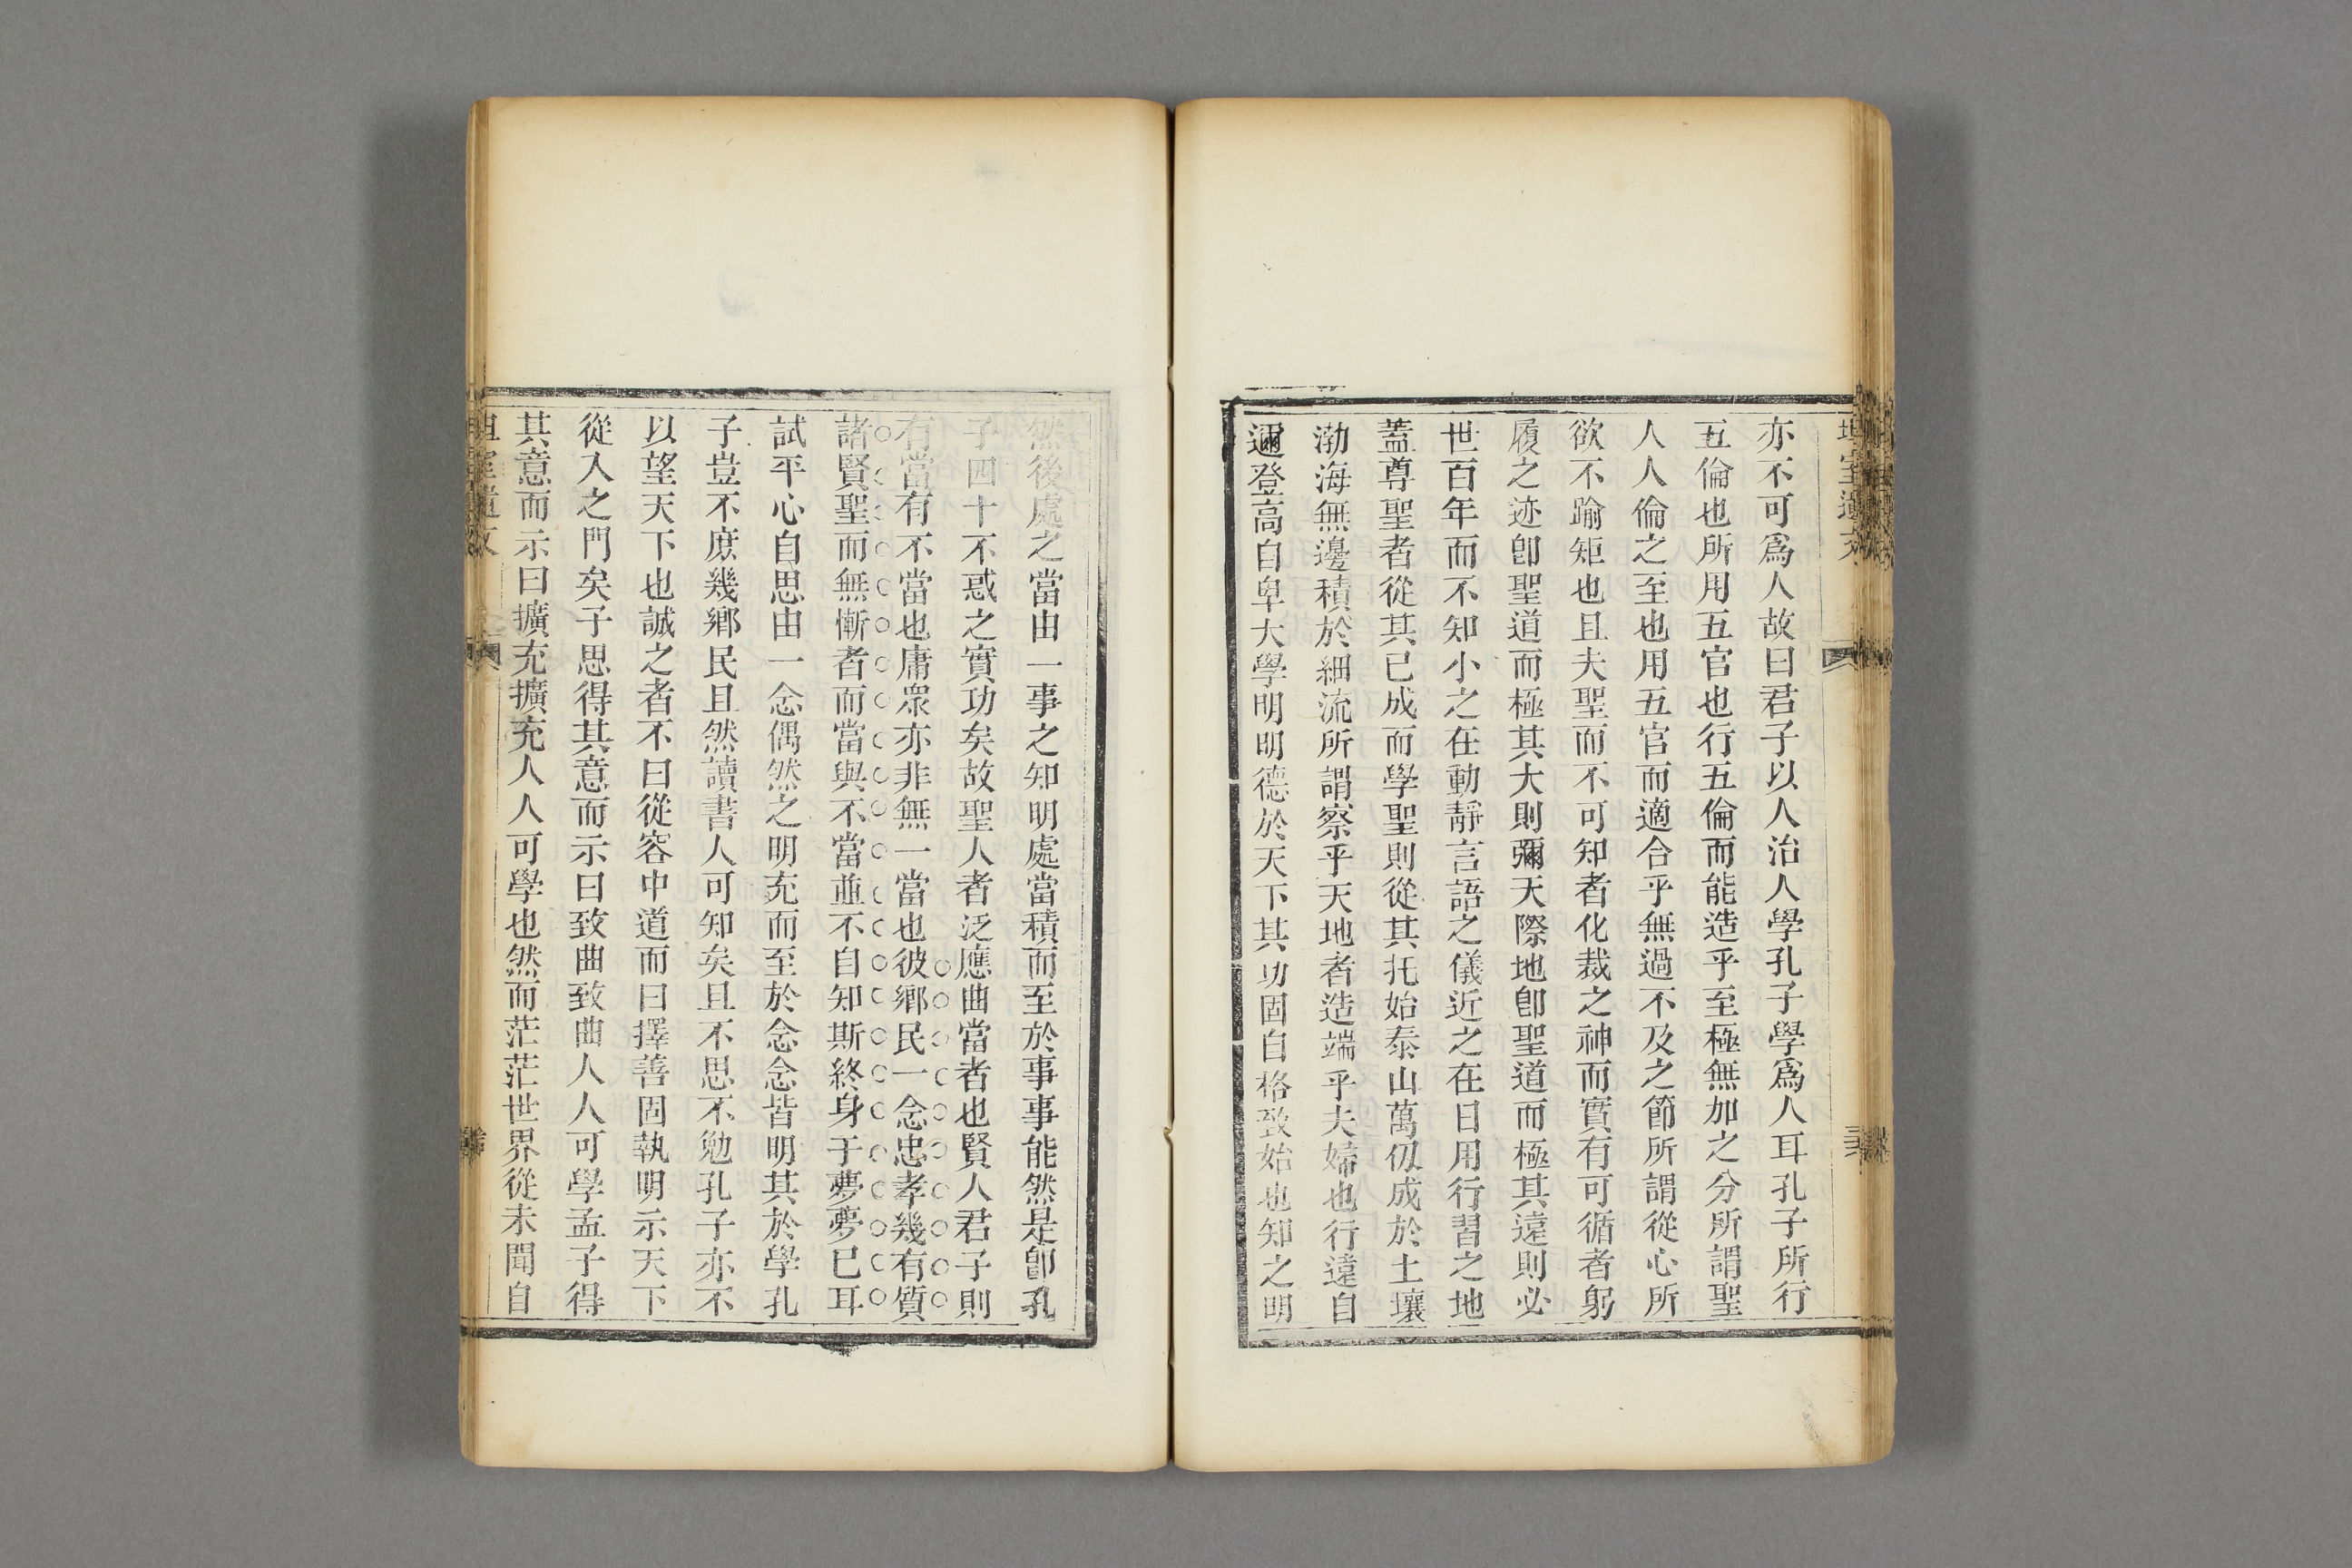 亦不可爲人故曰君子以人治人學孔子學爲人耳孔子所行
五倫也所用五官也行五倫而能造乎至極無加之分所謂聖
人人倫之至也用五官而適合乎無過不及之節所謂從心所
欲不踰矩也且夫聖而不可知者化裁之神而實有可循者躬
履之迹卽聖道而極其大則彌天際地卽聖道而極其遠則必
世百年而不知小之在動靜言語之儀近之在日用行習之地
蓋尊聖者從其已成而學聖則從其托始泰山萬仭成於土壤
渤海無邊積於細流所謂察乎天地者造端乎夫婦也行遠自
邇登高自卑大學明明德於天下其功固自格致始也知之明
然後處之當由一事之知明處當積而至於事事能然是卽孔
子四十不惑之實功矣故聖人者泛應曲當者也賢人君子則
有當有不當也庸衆亦非無一當也彼鄉民一念忠孝幾有質
諸賢聖而無慚者而當與不當並不自知斯終身于夢夢巳耳
試平心自思由一念偶然之明充而至於念念皆明其於學孔
子豈不庶幾鄉民且然讀書人可知矣且不思不勉孔子亦不
以望天下也誠之者不曰從容中道而曰擇善固執明示天下
從入之門矣子思得其意而示曰致曲致曲人人可學孟子得
其意而示曰擴充擴充人人可學也然而茫茫世界從未聞自